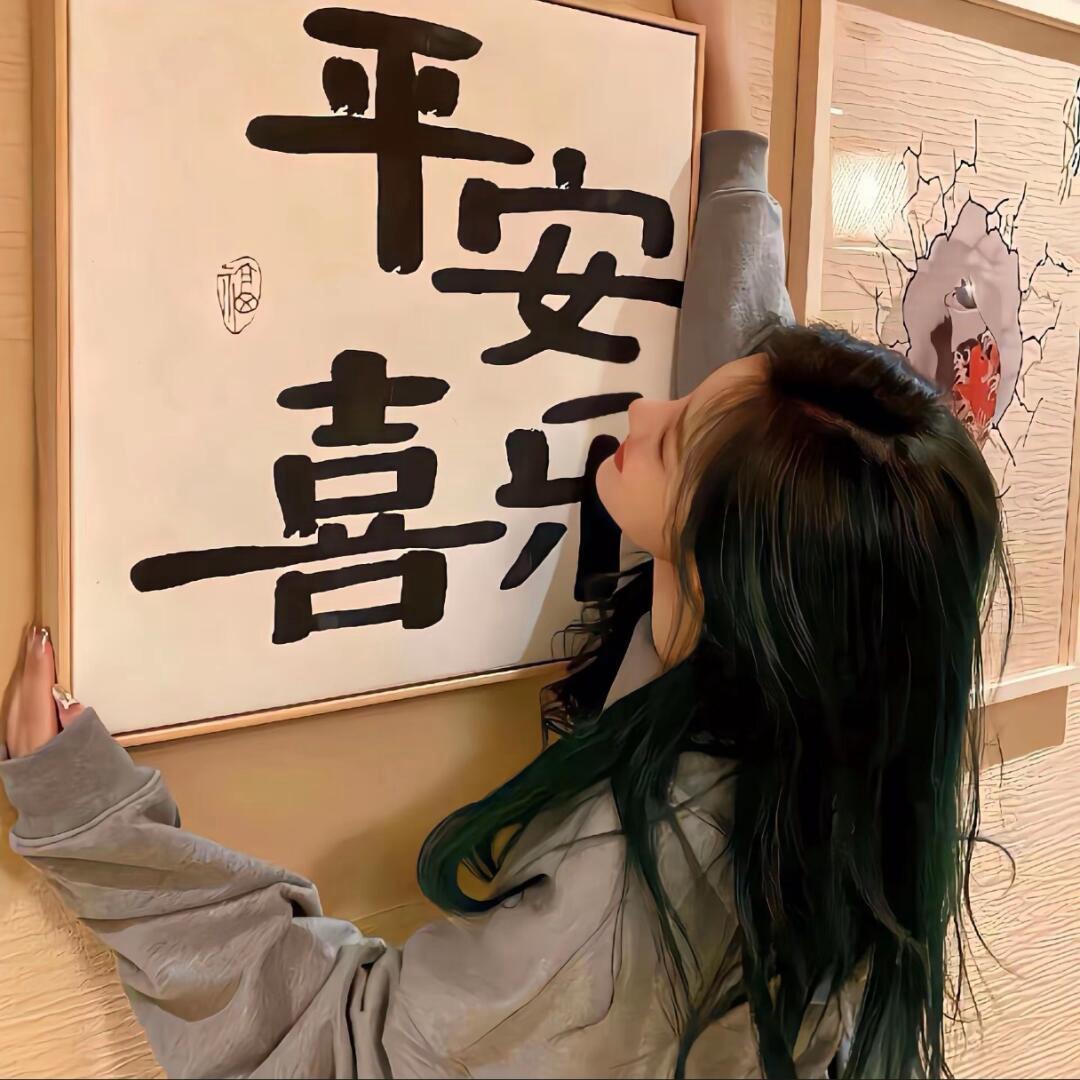 平
安
喜
乐
福